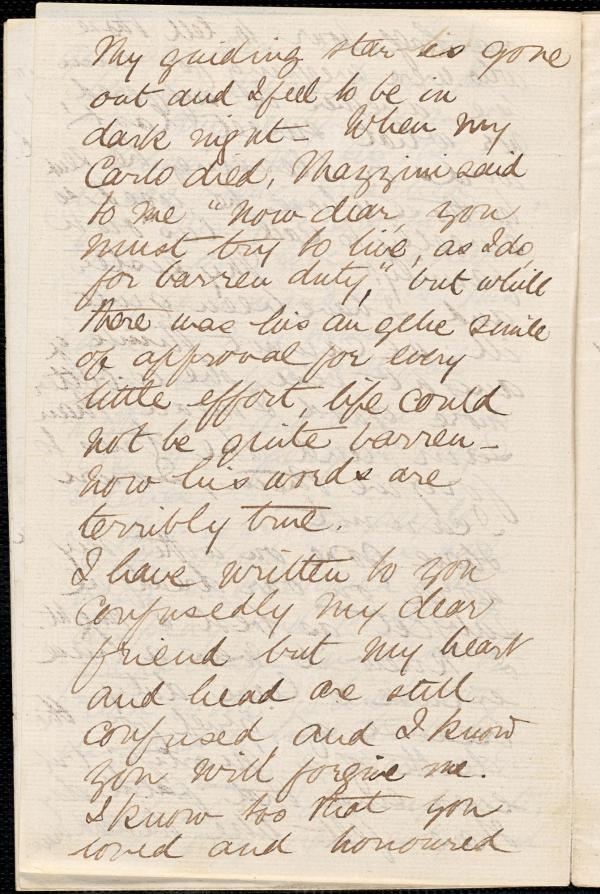 My guiding star is gone
out and I feel to be in
dark night - When my
Carlo died, Mazzini said
to me "now dear, you
must try to live, as I do,
for barren duty," but while
there was his angelic smile
of approval for every
little effort, life could
not be quite barren -
now his words are
terribly true.
I have written to you
confusedly my dear
friend but my heart
and head are still
confused and I know
you will forgive me.
I know too that you
loved and honoured